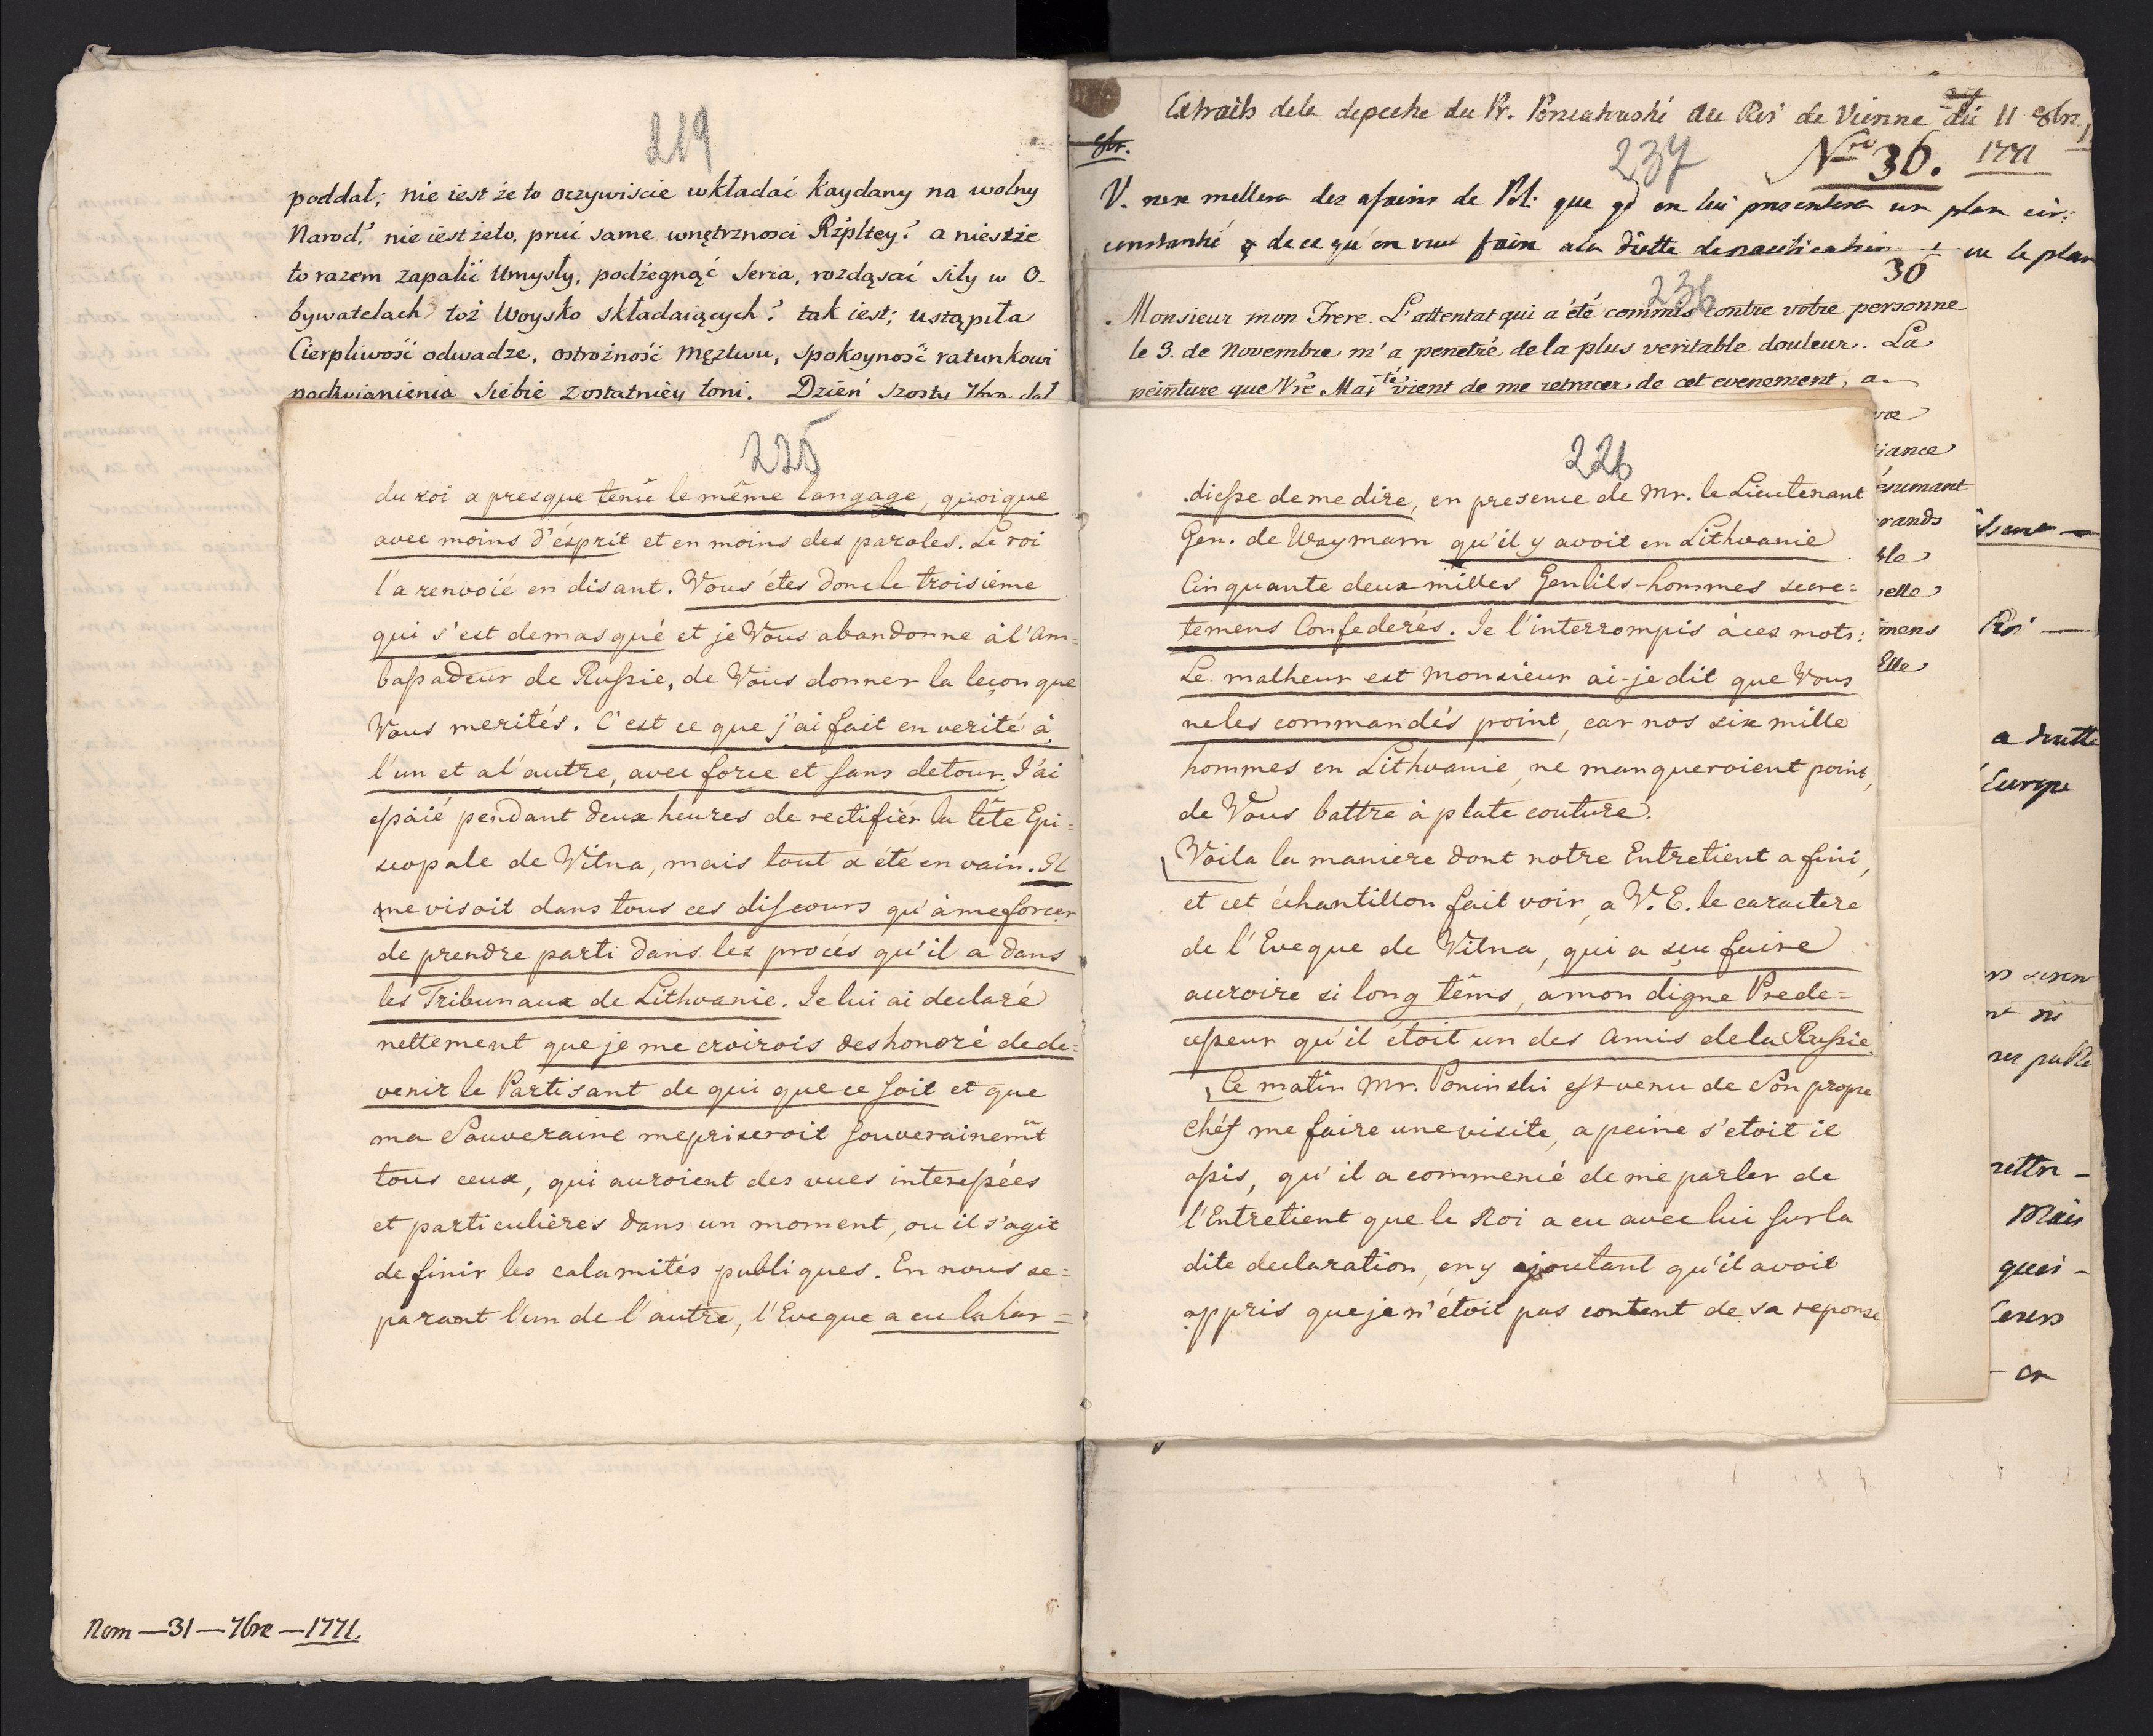 219
poddał; nie iest że to oczywiscie wkładać Kaydany na wolny
Narod? nie iest żeto. prui same wnętrznosci Rżpltey? a niestże
to razem zapalić Umysły, podżegnąć Seria, rozdąsać siły w O-
bywatelach toż Woysko składaiących? tak iest; ustąpiła
Cierpliwość odwadze, ostrożność męztwu, spokoyność ratunkowi
podzwianienia siebie zostatniey toni. Dzień szosty 7bra dał
225
du roi a presque tenü le même langage, quoique
avec moins d'ésprit et en moins des paroles. Le roi
l'a renvoié en disant. Vous étes donc le troisiéme
qui s'est demasqué et je Vous abandonne à l'Am=
bassadeur de Russie, de Vous donner la leçon que
Vous merités. C'est ce que j'ai fait en verité à
l'un et a l'autre, avec force et sans detour. J'ai
essaié pendant deux heures de rectifiér la tête Epi=
scopale de Vilna, mais tout a été en vain. Il
ne visoit dans tous ces discours qu'à me forcer
de prendre parti dans les procés qu'il a dans
les Tribunaux de Lithvanie. Je lui ai declaré
nettement que je me croirois deshonoré de de=
venir le Partisant de qui que ce soit et que
ma Souveraine mepriseroit souverainemt
tous ceux, qui auroient des vues interessées
et particulières dans un moment, ou il s'agit
de finir les calamités publiques. En nous se=
parant l'un de l'autre, l'Eveque a eu la har=
Nom—31—7bre—1771.
Extraits dela depeche du Pr. Poniatowski au Roi de Vienne du 11 8bre
8br.
237
Nro 36. 1771
V. ne se mellera des afaires de Pol: que qd on lui presentera un plan cir:
constantié & de ce qu'on veut faire a la diette de pacification ou le plan
36
236
Monsieur mon Frere. L'attentat qui a été commis contre votre personne
le 3. de Novembre m'a penetré de la plus veritable douleur. La
peinture que Vre Majté vient de me retracer de cet evenement, a
iance
ésumant
rands
elle
mens
Elle
226
diesse de me dire, en presence de Mr. le Lieutenant
Gen. de Waymarn qu'il y avoit en Lithvanie
Cinquante deux milles Gentils-hommes secre=
temens Confederés. Je l'interrompis à ces mots:
Le malheur est Monsieur ai-je dit que Vous
ne les commandés point, car nos six mille
hommes en Lithvanie, ne manqueroient point,
de Vous battre à plate couture.
Voila la maniere dont notre Entretient a fini,
et cet échantillon fait voir, a V. E. le caractere
de l'Eveque de Vilna, qui a sçu faire
accroire si long têms, a mon digne Prede=
cesseur qu'il étoit un des Amis de la Russie.
Ce matin Mr. Poninski est venu de Son propre
chéf me faire une visite, a peine s'etoit il
assis, qu'il a commencé de me parler de
l'Entretient que le Roi a eu avec lui sur la
dite declaration, en y ajoutant qu'il avoit
appris que je n'étoit pas content de sa reponse
Roi —
Europe
Mais